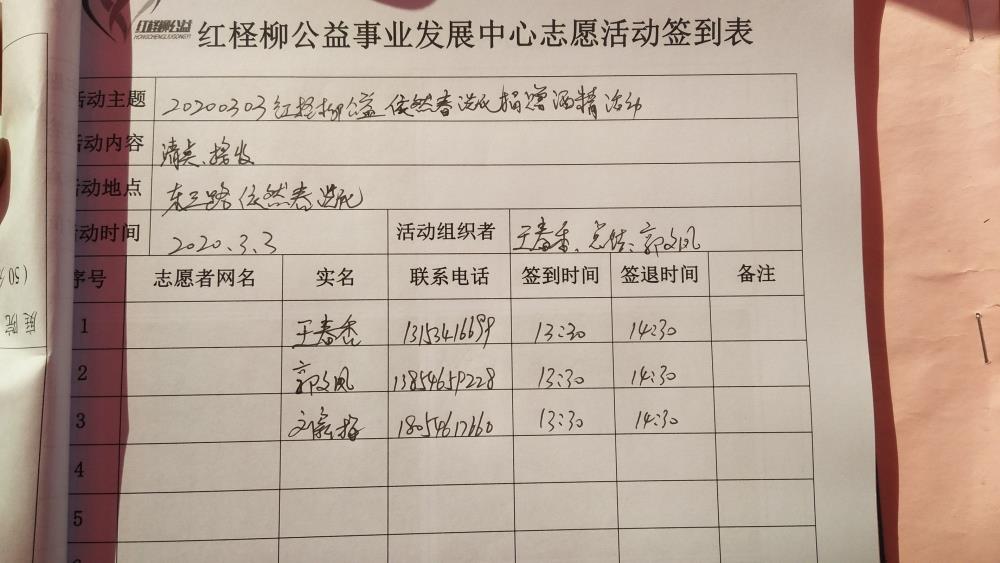 红柽柳公益
HONGCHENGLIUGONGYI
红柽柳公益事业发展中心志愿活动签到表
活动主题 20200303红柽柳公益依然春洗化捐赠酒精活动
活动内容 清点、接收
活动地点 东三路依然春洗化
活动时间 2020.3.3 活动组织者 王春香、总结:郭文凤
序号 志愿者网名 实名 联系电话 签到时间 签退时间 备注
1 王春香 13153416699 13:30 14:30
2 郭文凤 13854659228 13:30 14:30
3 18054617660 13:30 14:30
4
5
庭院
(50